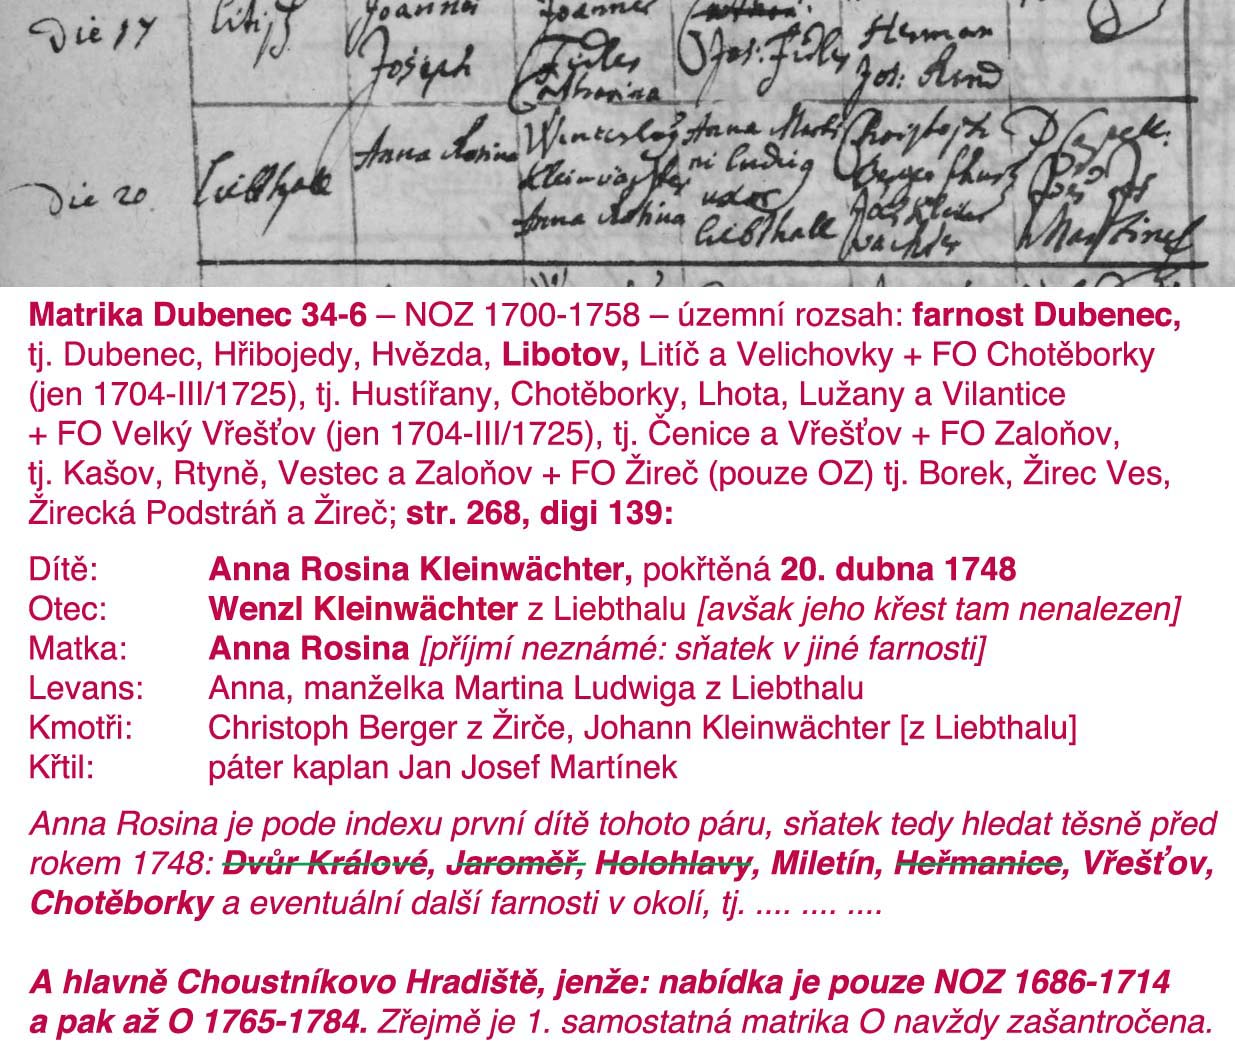 Die 17 Litiz Joannes Joannes Herman
Joseph Fidler Jos: Fidler Jos: Kund
Catharina
Anna Rosina Wentzeslaus Anna Marti Christoph P Capell:
Die 20 Liebthall Kleinwachter ni Ludwig Berger
Anna Rosina uxor Joh: Klein
Liebthall wachter Martinek
Matrika Dubenec 34-6 – NOZ 1700-1758 – územní rozsah: farnost Dubenec,
tj. Dubenec, Hřibojedy, Hvězda, Libotov, Litíč a Velichovky + FO Chotěborky
(jen 1704-III/1725), tj. Hustířany, Chotěborky, Lhota, Lužany a Vilantice
+ FO Velký Vřešťov (jen 1704-III/1725), tj. Čenice a Vřešťov + FO Zaloňov,
tj. Kašov, Rtyně, Vestec a Zaloňov + FO Žireč (pouze OZ) tj. Borek, Žirec Ves,
Žirecká Podstráň a Žireč; str. 268, digi 139:
Dítě: Anna Rosina Kleinwächter, pokřtěná 20. dubna 1748
Otec: Wenzl Kleinwächter z Liebthalu [avšak jeho křest tam nenalezen]
Matka: Anna Rosina [příjmí neznámé: sňatek v jiné farnosti]
Levans: Anna, manželka Martina Ludwiga z Liebthalu
Kmotři: Christoph Berger z Žirče, Johann Kleinwächter [z Liebthalu]
Křtil: páter kaplan Jan Josef Martínek
Anna Rosina je pode indexu první dítě tohoto páru, sňatek tedy hledat těsně před
rokem 1748: Dvůr Králové, Jaroměř, Holohlavy, Miletín, Heřmanice, Vřešťov,
Chotěborky a eventuální další farnosti v okolí, tj. .... .... ....
A hlavně Choustníkovo Hradiště, jenže: nabídka je pouze NOZ 1686-1714
a pak až O 1765-1784. Zřejmě je 1. samostatná matrika O navždy zašantročena.